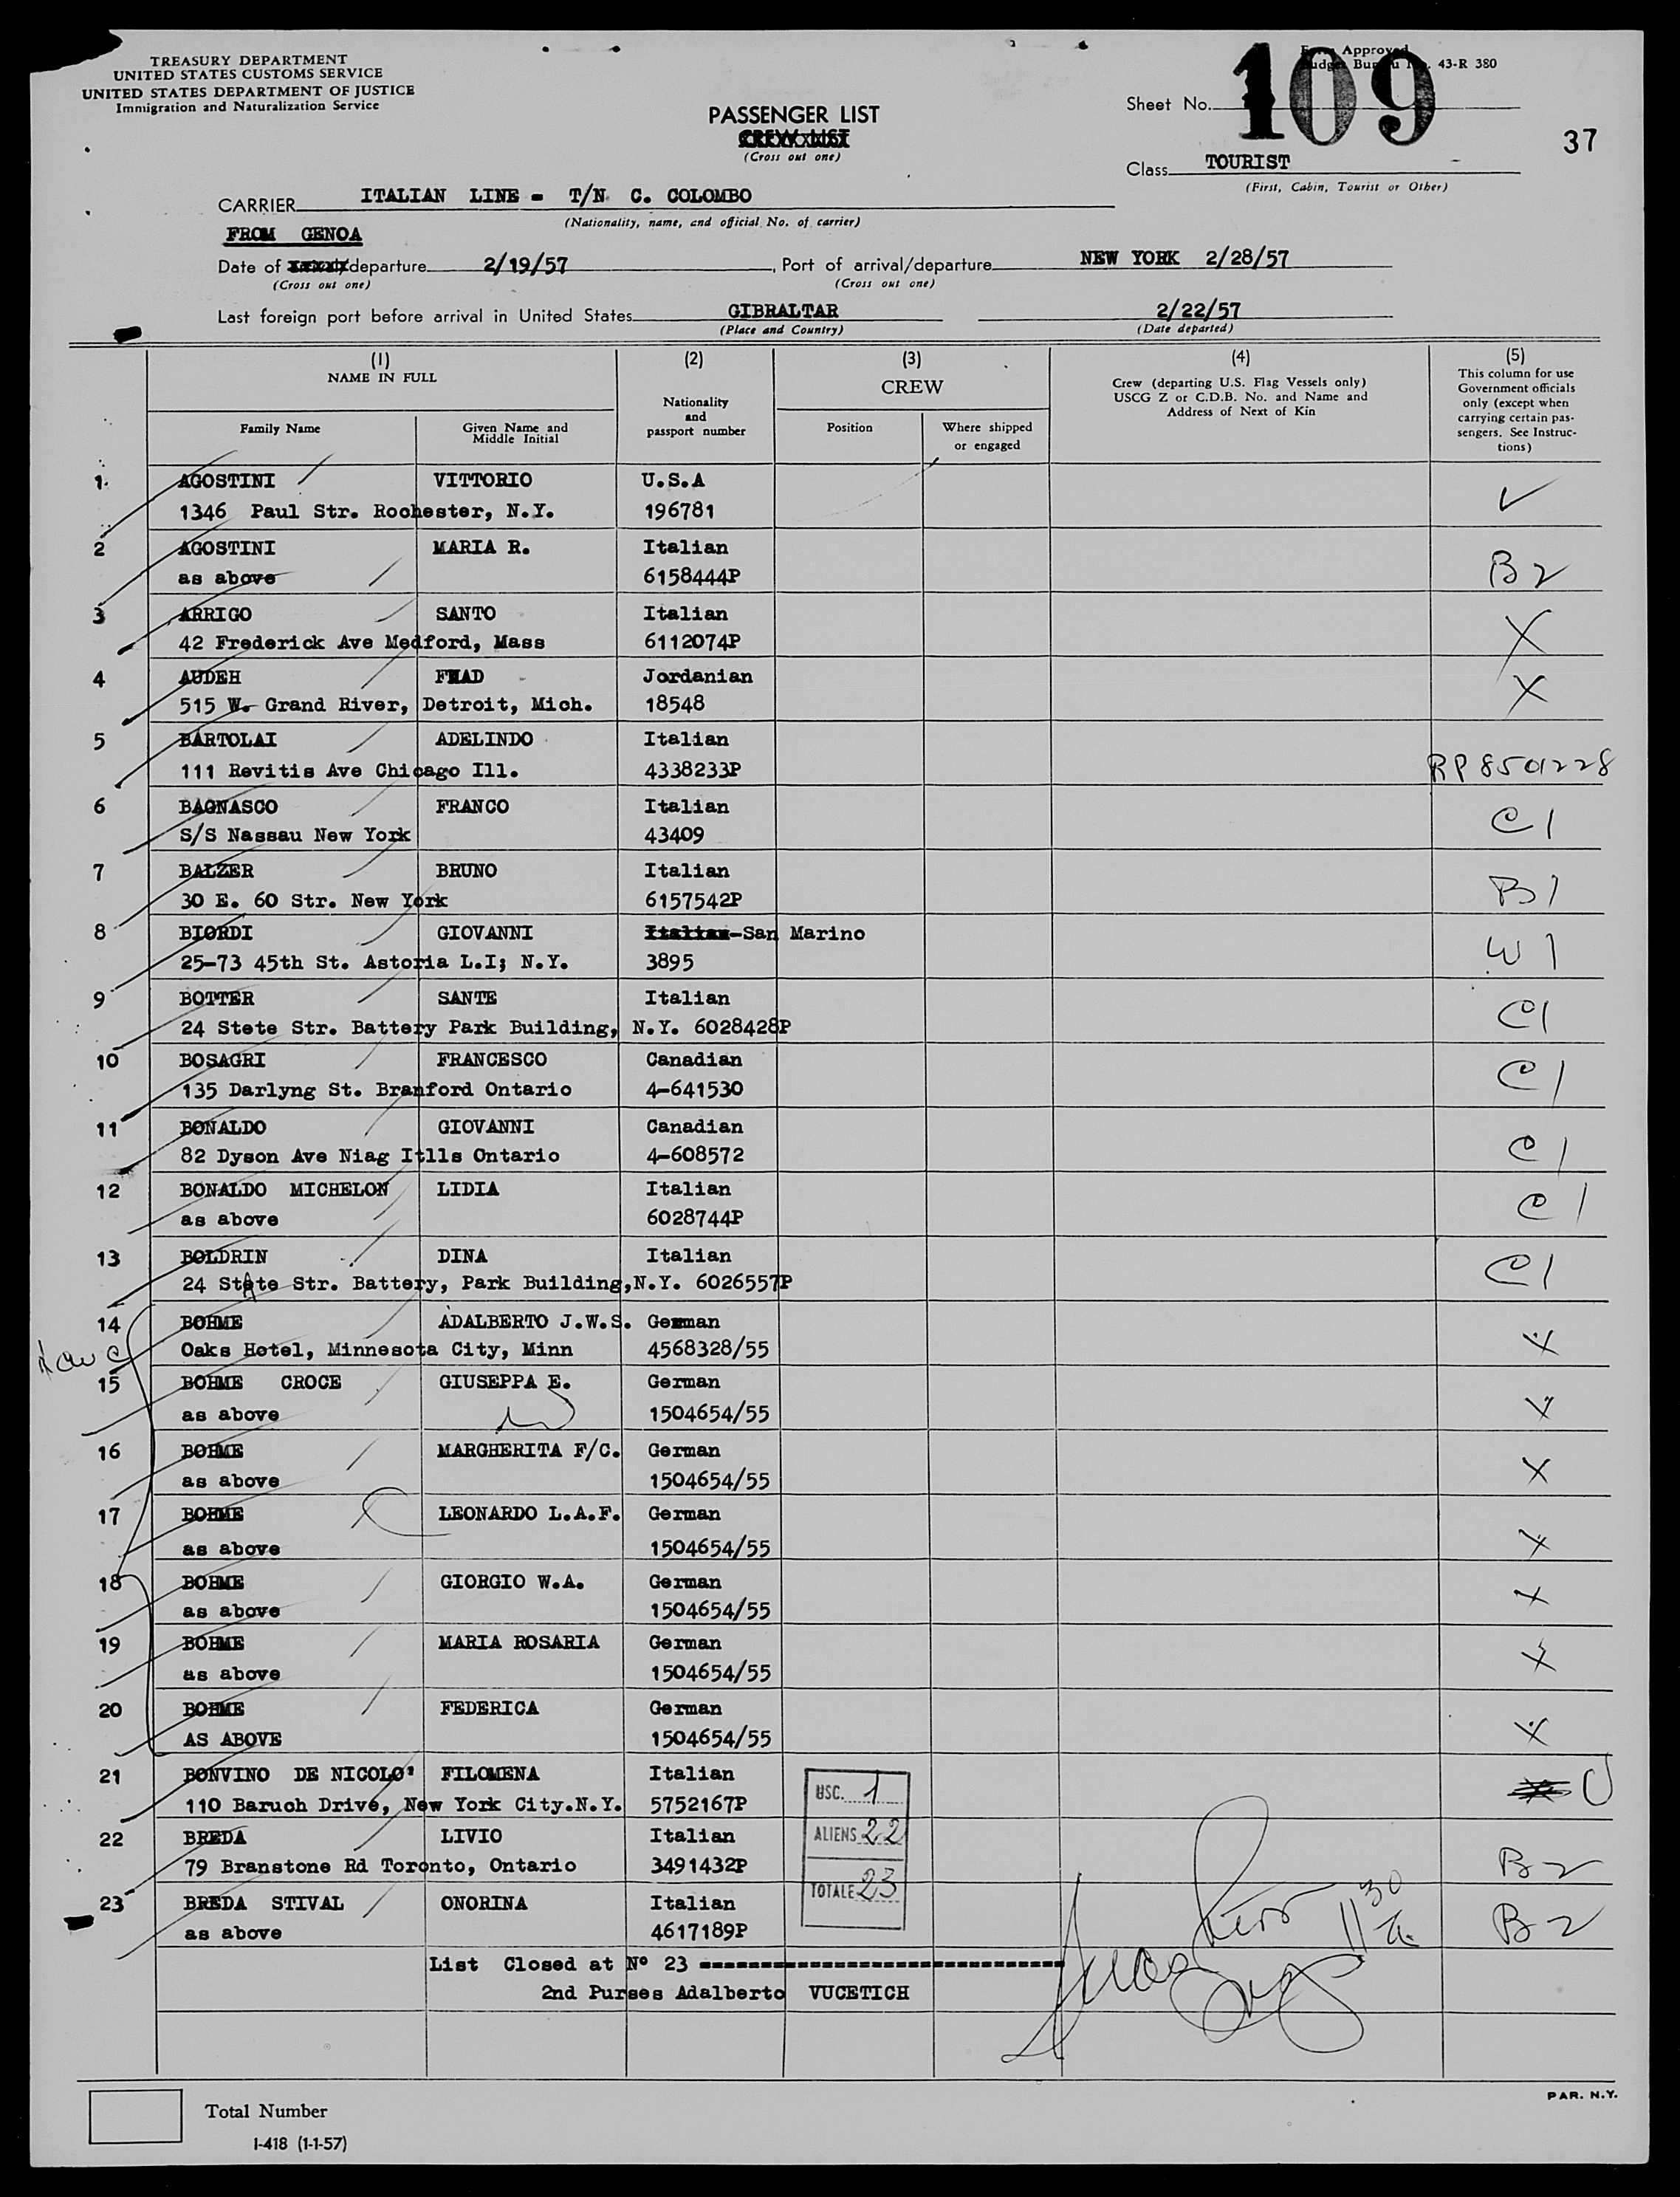 TREASURY DEPARTMENT
UNITED STATES CUSTOMS SERVICE
UNITED STATES DEPARTMENT OF JUSTICE
Immigration and Naturalization Service
PASSENGER LIST
CREW LIST
(Cross out one)
Form Approved
Budget Bureau No. 43-R 380
Sheet No. 109
37
Class TOURIST
(First, Cabin, Tourist or Other)
CARRIER ITALIAN LINE - T/N C. COLOMBO
(Nationality, name, and official No. of carrier)
FROM GENOA
Date of departure 2/19/57, Port of arrival/departure NEW YORK 2/28/57
(Cross out one) (Cross out one)
Last foreign port before arrival in United States GIBRALTAR 2/22/57
(Place and Country) (Date departed)
(1) (2) (3) (4) (5)
NAME IN FULL
Family Name
Given Name and Middle Initial
Nationality and passport number
CREW
Position
Where shipped or engaged
Crew (departing U.S. Flag Vessels only)
USCG Z or C.D.B. No. and Name and
Address of Next of Kin
This column for use
Government officials
only (except when
carrying certain pas-
sengers. See Instruc-
tions)
1. AGOSTINI VITTORIO U.S.A
1346 Paul Str. Rochester, N.Y. 196781
2 AGOSTINI MARIA R. Italian
as above 6158444P B2
3 ARRIGO SANTO Italian
42 Frederick Ave Medford, Mass 6112074P X
4 AUDEH Jordanian
515 W. Grand River, Detroit, Mich. 18548 X
5 BARTOLAI ADELINDO Italian
111 Revitis Ave Chicago Ill. 4338233P RP 8501228
6 BAGNASCO FRANCO Italian
S/S Nassau New York 43409 C1
7 BALZER BRUNO Italian
30 E. 60 Str. New York 6157542P B1
8 BIORDI GIOVANNI Italian-San Marino
25-73 45th St. Astoria L.I; N.Y. 3895 W1
9 BOTTER SANTE Italian
24 Stete Str. Battery Park Building, N.Y. 6028428P C1
10 BOSAGRI FRANCESCO Canadian
135 Darlyng St. Branford Ontario 4-641530 C1
11 BONALDO GIOVANNI Canadian
82 Dyson Ave Niag Itlls Ontario 4-608572 C1
12 BONALDO MICHELON LIDIA Italian
as above 6028744P C1
13 BOLDRIN DINA Italian
24 State Str. Battery, Park Building,N.Y. 6026557P C1
14 BOHME ADALBERTO J.W.S. German
Oaks Hotel, Minnesota City, Minn 4568328/55 X
15 BOHME CROCE GIUSEPPA E. German
as above 1504654/55 X
16 BOHME MARGHERITA F/C. German
as above 1504654/55 X
17 BOHME LEONARDO L.A.F. German
as above 1504654/55 X
18 BOHME GIORGIO W.A. German
as above 1504654/55 X
19 BOHME MARIA ROSARIA German
as above 1504654/55 X
20 BOHME FEDERICA German
AS ABOVE 1504654/55 X
21 BONVINO DE NICOLO' FILOMENA Italian
110 Baruch Drive, New York City.N.Y. 5752167P U
USC. 1
22 BREDA LIVIO Italian
ALIENS 22
79 Branstone Rd Toronto, Ontario 3491432P B2
TOTALE 23
23 BREDA STIVAL ONORINA Italian
as above 4617189P 1130 B2
List Closed at Nº 23 ------------------------------
2nd Purses Adalberto VUCETICH
PAR. N.Y.
Total Number
I-418 (1-1-57)